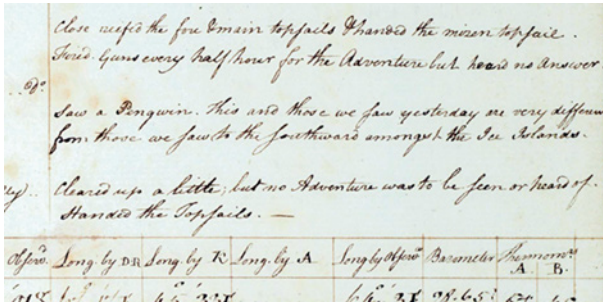 Close reefed the fore & main topsails & handed the mizen topsail.
Fired Guns every half hour for the Adventure but heard no Answer
do.
Saw a Penguin. this and those we saw yesterday are very
from those we saw to the Southward amongst the Ice Islands.
Cleared up a little; but no Adventure was to be seen or heard of.
Handed the Topsails. —
Observd. Long. by DR Long. by K Long. by A Long by Observn Barometer Thermomrs
A. B.